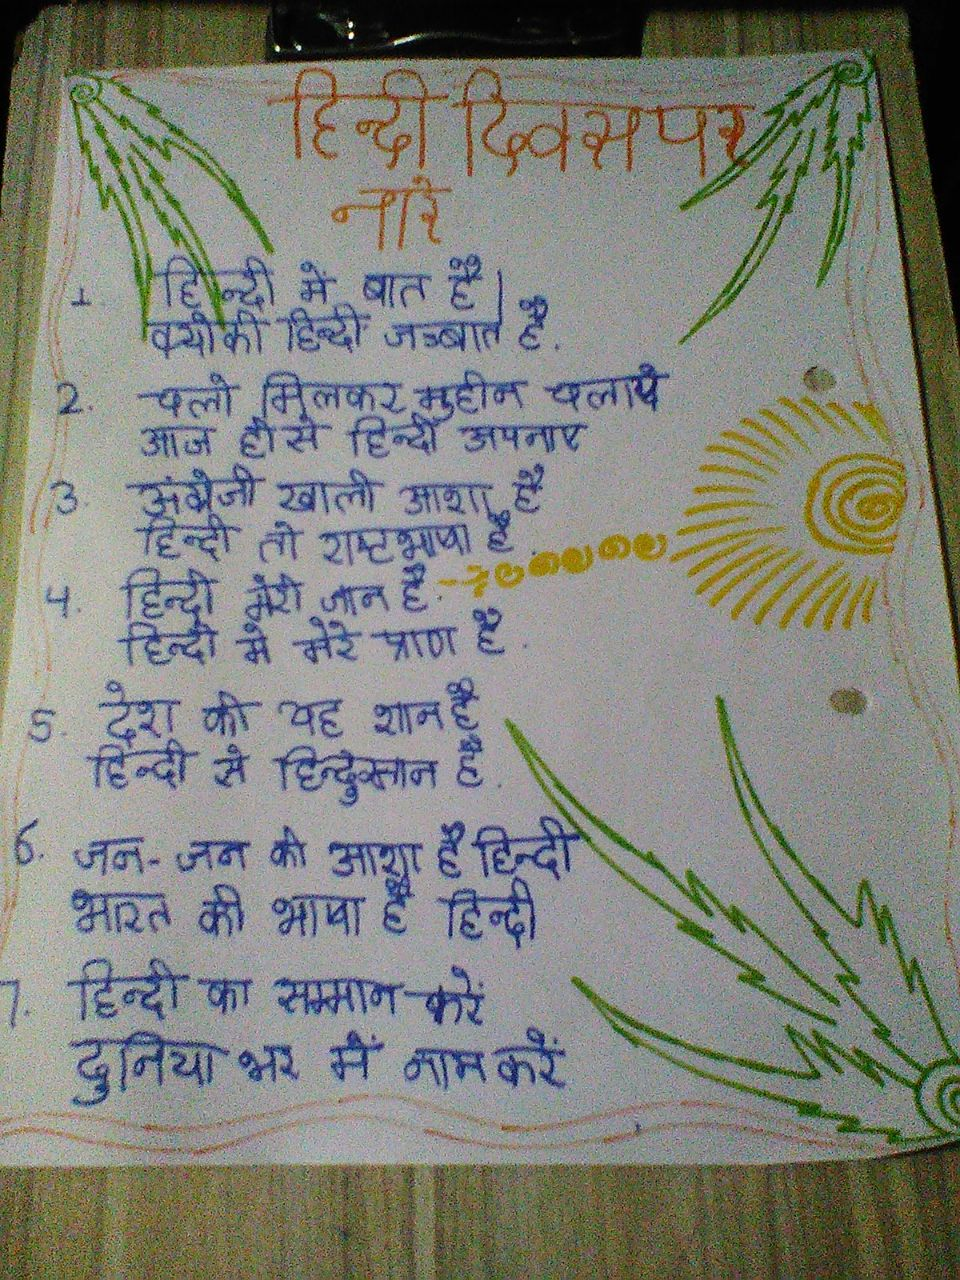 हिन्दी दिवस पर
नारे
1. हिन्दी में बात है|
क्योकी हिन्दी जज्बात है.
2. चलो मिलकर मुहीम चलाये
आज ही से हिन्दी अपनाए
3. अंग्रेजी खाली आशा है
हिन्दी तो राष्टभाषा है.
4. हिन्दी मेरी जान है.
हिन्दी में मेरे प्राण है.
5. देश की यह शान है
हिन्दी से हिन्दुस्तान है.
6. जन-जन की आशा है हिन्दी
भारत की भाषा है हिन्दी
7. हिन्दी का सम्मान करें
दुनिया भर में नाम करें